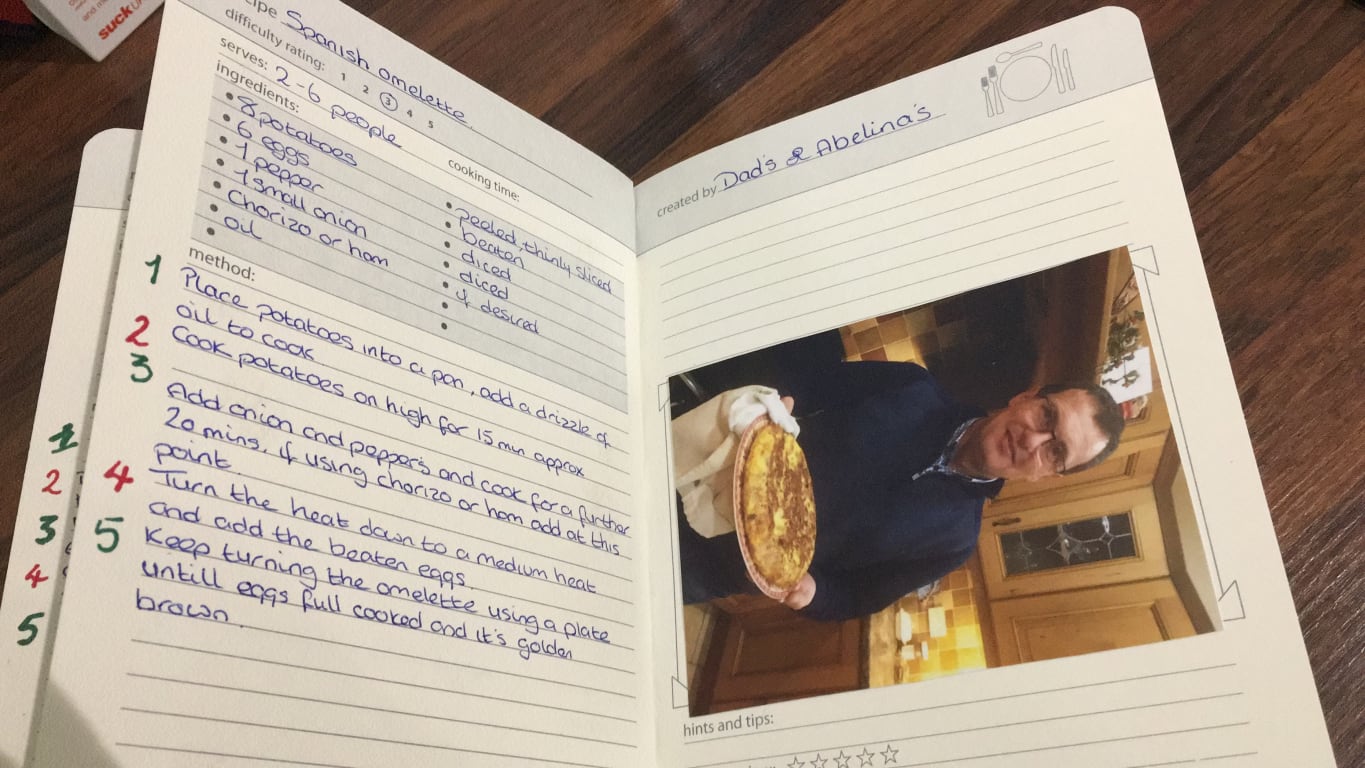 suck UK
recipe Spanish omelette
difficulty rating: 1 2 3 4 5
serves: 2-6 people
cooking time:
ingredients:
• 8 potatoes • peeled, thinly sliced
• 6 eggs • beaten
• 1 pepper • diced
• 1 small onion • diced
• chorizo or ham • if desired
• oil •
method:
1 Place potatoes into a pan, add a drizzle of
oil to cook
2 Cook potatoes on high for 15 min approx
3 Add onion and peppers and cook for a further
20 mins, if using chorizo or ham add at this
point
4 Turn the heat down to a medium heat
and add the beaten eggs
5 Keep turning the omelette using a plate
untill eggs full cooked and it's golden
brown.
1
2
3
4
5
created by Dad's & Abelina's
hints and tips: